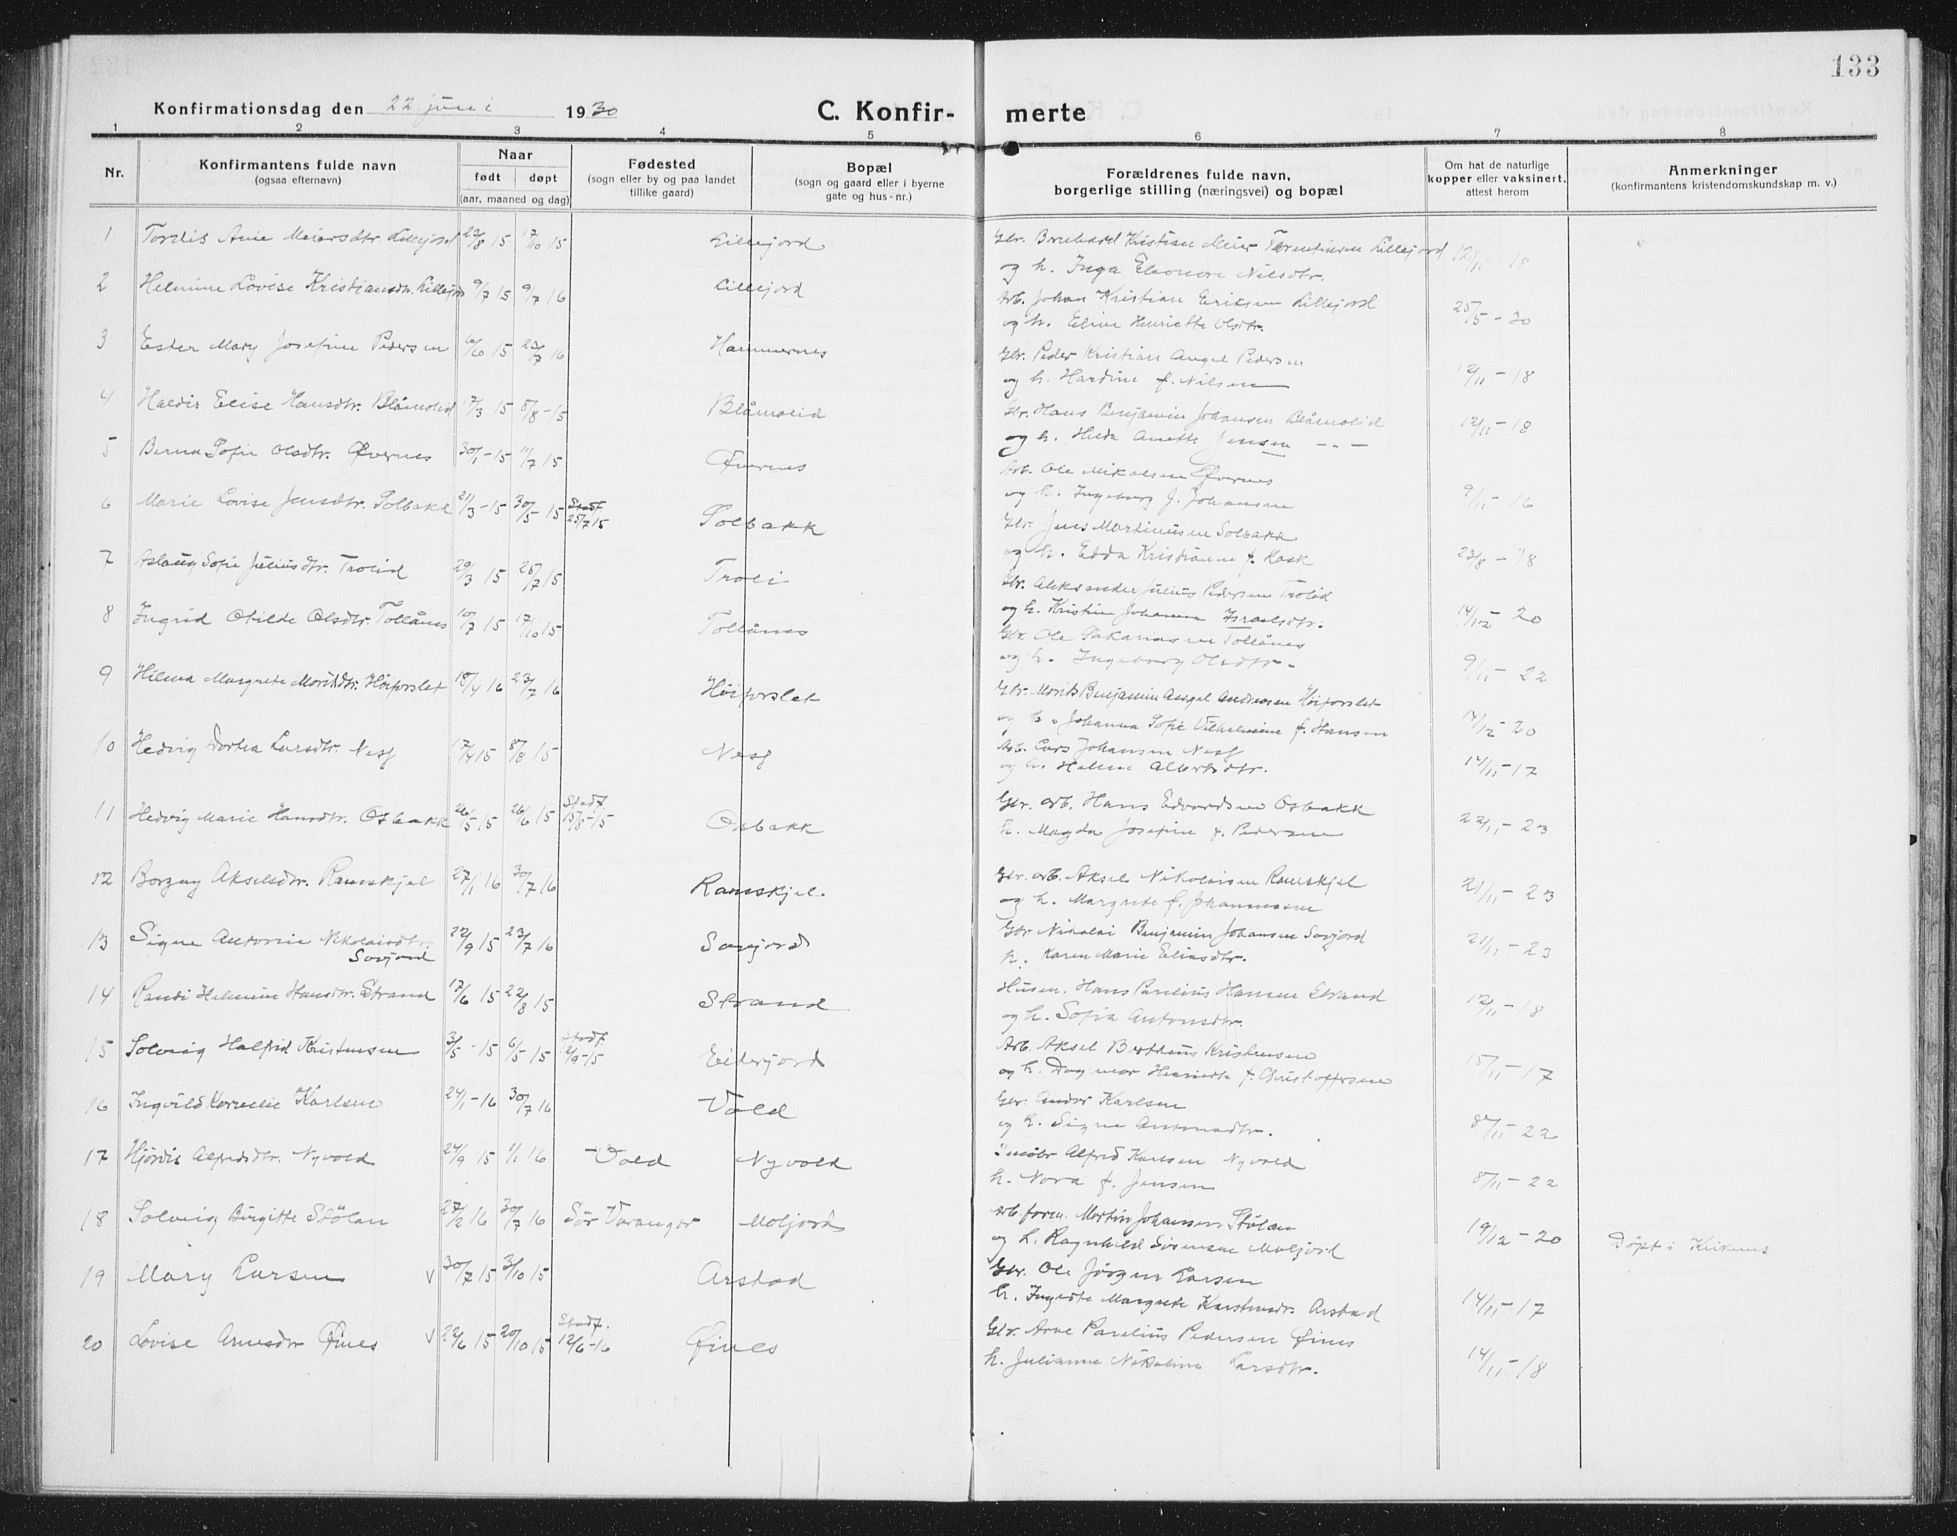 133
Konfirmationsdag den 22. juni 1930
C. Konfir- merte
1 2 3 4 5 6 7 8
Nr.
Konfirmantens fulde navn
(ogsaa efternavn)
Naar
født døpt
(aar, maaned og dag)
Fødested
(sogn eller by og paa landet
tillike gaard)
Bopæl
(sogn og gaard eller i byerne
gate og hus-nr.)
Forældrenes fulde navn,
borgerlige stilling (næringsvei) og bopæl
Om hat de naturlige
kopper eller vaksinert,
attest herom
Anmerkninger
(konfirmantens kristendomskundskap m. v.)
1 Tordis Anie Meiersdtr. Lillejord 22/8 15 17/10 15 Lillejord Gbr. Bernhard Kristian Meier Torentinsen Lillejord 12/11 18
og h. Inga Eleonore Nilsdtr.
2 Helmine Lovise Kristiansdtr. Lillejord 9/7 15 9/7 16 Lillejord Arb. Johan Kristian Eriksen Lillejord 25/5 - 30
og h. Eline Henriette Olsdtr.
3 Ester Mary Josefine Pedersen 15 23/7 16 Hammernes Gbr. Peder Kristian Angel Pedersen
og h. Hardine f. Nilsen 12/11 - 18
4 Haldis Elise Hansdtr. Blåmolid 17/3 15 8/8 - 15 Blåmolid Gbr. Hans Benjamin Johansen Blåmolid 12/11 - 18
og h. Hilda Anette Jensen - " -
5 Berna Sofie Olsdtr. Øvernes 30/1 - 15 11/7 15 Øvernes Arb. Ole Mikalsen Øvernes
og h. Ingeborg J. Johansen 9/11 - 16
6 Marie Lovise Jensdtr. Solbakk 21/3 - 15 30/5 - 15 Stadf. 25/7 15 Solbakk Gbr. Jens Martinusen Solbakk
og h. Edda Kristianne f. Rask 23/8 - 18
7 Aslaug Sofie Juliusdtr. Trolid 29/3 15 25/7 15 Troli Gbr. Aleksander Julius Pedersen Trolid
og h. Kristine Johanna Israelsdtr. 14/12 - 20
8 Ingrid Otilde Olsdtr. Tollånes 10/7 15 17/10 15 Tollånes Gbr. Ole Sakariasen Tollånes
og h. Ingeborg Olsdtr. 9/11 - 22
9 Hilma Margrete Moritsdtr. Høiforslet 18/4 16 23/7 16 Høiforslet Gbr. Morits Benjamin Angel Andersen Høiforslet
og h. Johanna Sofie Vilhelmine f. Hansen 14/12 - 20
10 Hedvig Dortea Larsdtr. Nesf 17/4 15 8/8 15 Nesf Arb. Lars Johansen Nesf
og h. Helene Albertsdtr. 14/11 - 17
11 Hedvig Marie Hansdtr. Osbakk 26/5 15 26/6 15 Stadf. 15/8 - 15 Osbakk Gbr. arb. Hans Edvardsen Osbakk
h. Magda Josefine f. Pedersen 22/11 - 23
12 Borgny Akselsdtr. Ramskjel 27/1 16 30/7 16 Ramskjel. Gbr. arb. Aksel Nikolaisen Ramskjel 21/11 - 23
og h. Margrete f. Johannessen
13 Signe Antonie Nikolaisdtr. 22/9 15 23/7 16 Sørjord Gbr. Nikolai Benjamin Johansen Sørjord
Sørjord h. Karen Marie Eliasdtr. 21/11 - 23
14 Randi Helmine Hansdtr. Strand 17/6 15 22/8 15 Strand Husm. Hans Paulius Hansen Strand 12/11 - 18
og h. Sofia Antonsdtr.
15 Solveig Halfrid Kristensen 3/5 - 15 6/5 15 Stadf. 12/9 - 15 Eiterjord Arb. Aksel Berthius Kristensen
og h. Dagmar Henriette f. Christoffersen 15/11 - 17
16 Ingvild Kornelie Karlsen 24/1 - 16 30/7 16 Vold Gbr. Andor Karlsen
og h. Signe Antonsdtr. 8/11 - 22
17 Hjørdis Alfredsdtr. Nyvold 24/9 15 1/1 16 Vold Nyvold Småbr. Alfred Karlsen Nyvold
h. Nora f. Jensen 8/11 - 22
18 Solveig Birgitte Stølan 27/2 16 30/7 16 Sör Varanger Moljord Arb. form. Martin Johansen Stølan
og h. Ragnhild Sörensen Moljord 19/12 - 20 Döpt i Kirkenes
19 Mary Larsen V 30/7 15 3/10 15 Arstad Gbr. Ole Jörgen Larsen
h. Ingerte Margrete Karstensdtr. Arstad 14/11 - 17
20 Lovise Arnesdtr Øines V 22/6 15 20/10 15 Stadf. 12/6 - 16 Øines Gbr. Arne Paulius Pedersen Øines
h. Julianne Nikoline Larsdtr. 14/11 - 18